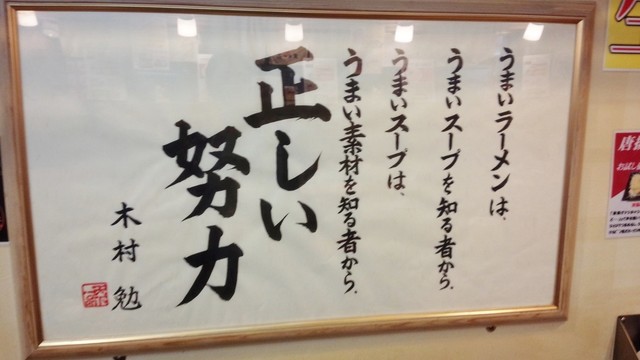 うまいラーメンは、
うまいスープを知る者から、
うまいスープは、
うまい素材を知る者から、
正しい
努力
木村 勉
唐揚